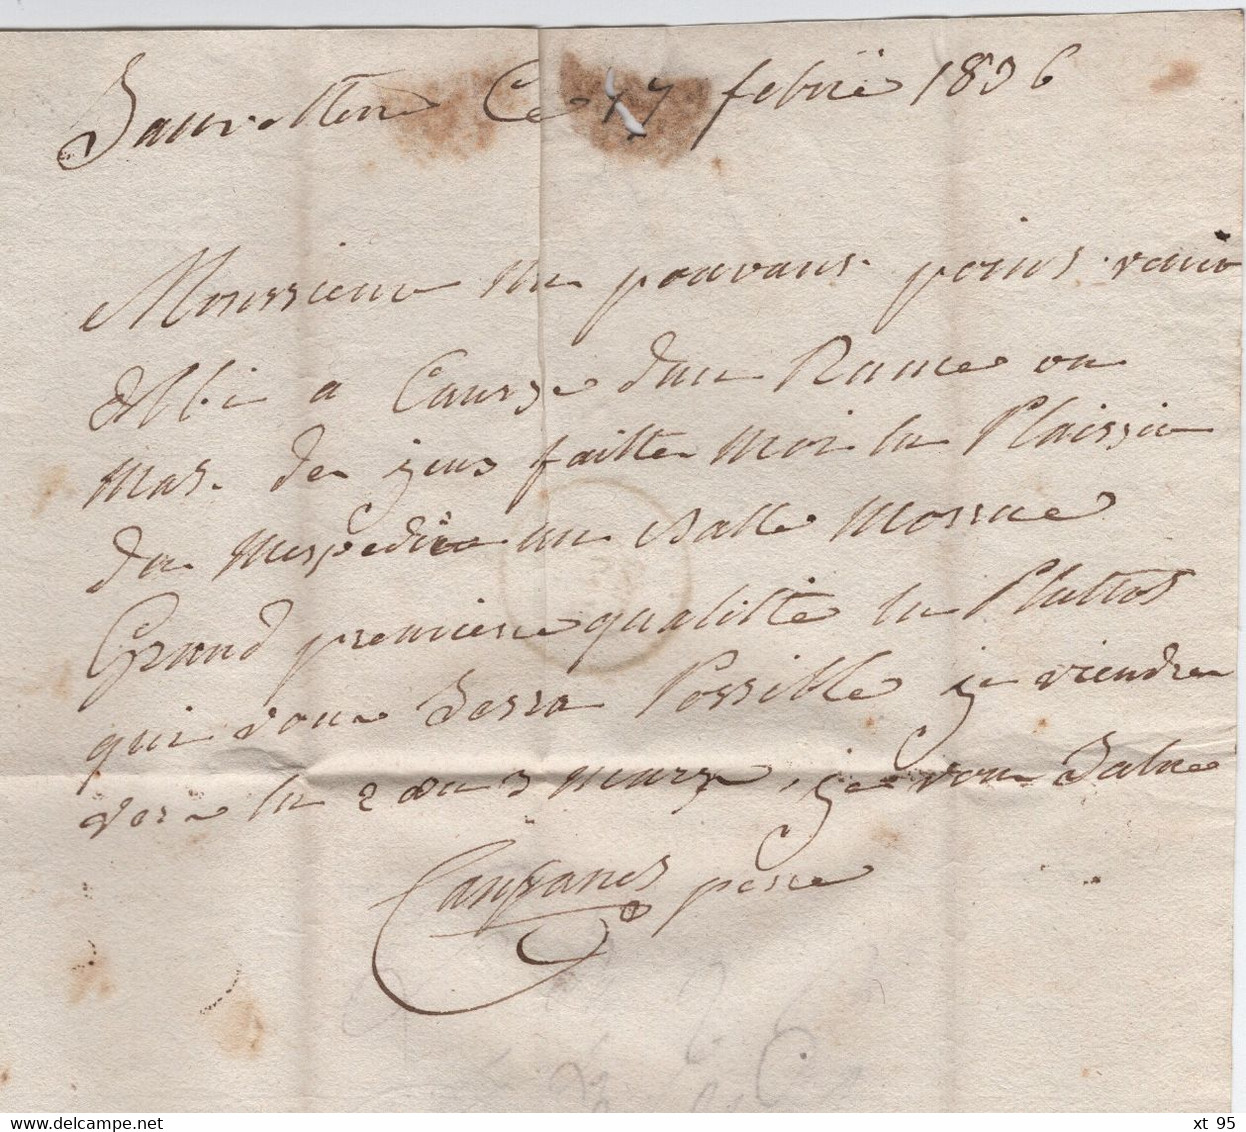 Sauveterre Ce 17 febrié 1836
Monssieur ne pouvans poins venir
Albi a Causse dun Rume ou
mas. de yeus faitte moi le Plaissir
de mespedier un Balle Morue
Grand premiere qualitte la Plattos
qui vous Serra Possible je viendre
vers le 2 ou 3 mars, je vou Salue
Cansanes pere
xt 95